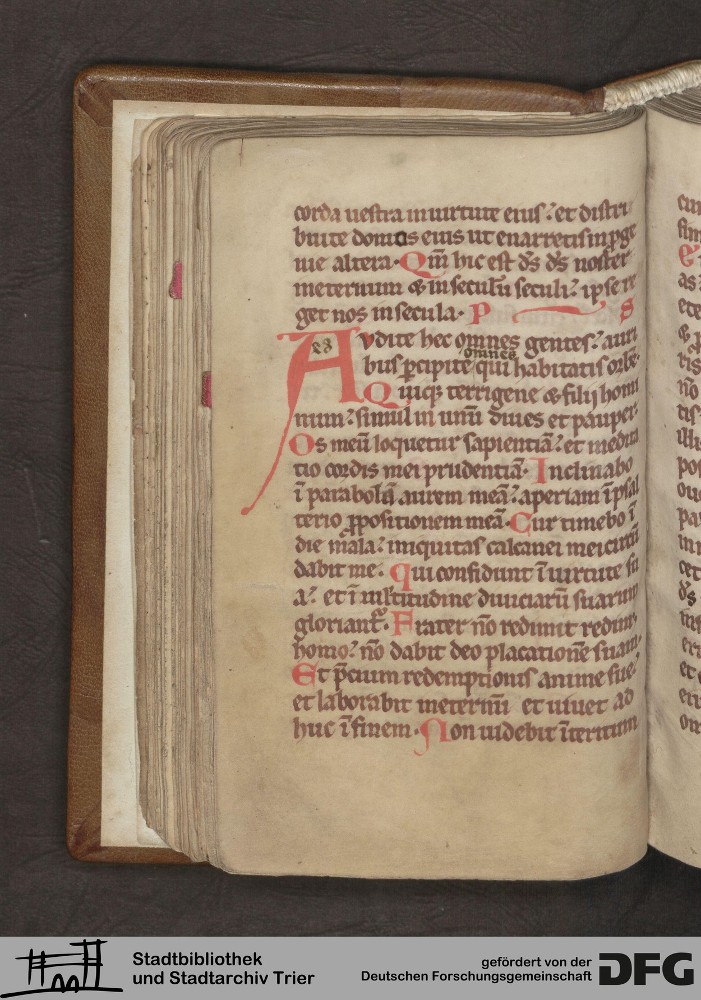 corda uestra in uirtute eius: et distri
buite domos eius ut enarretis in ꝓge
nie altera. Qm̄ hic est ds̄ ds̄ noster
ineternum & in seculum seculi: ipse re
get nos in secula. P S
Audite hec omnes gentes: auri
omnes
bus ꝑcipite qui habitatis orbē.
Quiq; terrigene & filij homi
num: simul in unū diues et pauper.
Os meū loquetur sapientiā: et medita
tio cordis mei prudentiā. Inclinabo
ī parabolā aurem meā: aperiam ī psal
terio ꝓpositionem meā. Cur timebo ī
die mala: iniquitas calcanei mei circū
dabit me. Qui confidunt ī uirtute su
a: et ī multitudine diuiciarū suarum
gloriant᷑. Frater nō redimit redim&
homo: nō dabit deo placationē suam.
Et p̄cium redemptionis anime sue:
et laborabit ineternū et uiuet ad
huc ī finem. Non uidebit īteritum
cum
fin
&
as
ete
& p
ris
nō
tis
illi
pos
ouc
pa
in
cet
ds̄
inf
eri
et
eri
om
Stadtbibliothek
und Stadtarchiv Trier
gefördert von der
Deutschen Forschungsgemeinschaft
DFG